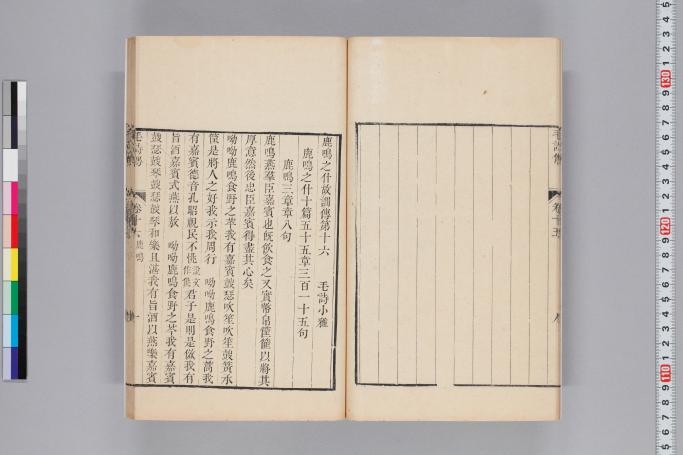 鹿鳴之什故訓傳第十六　毛詩小雅
鹿鳴之什十篇五十五章三百一十五句
鹿鳴三章章八句
鹿鳴燕羣臣嘉賓也既飲食之又實幣帛筐篚以將其
厚意然後忠臣嘉賓得盡其心矣
呦呦鹿鳴食野之苹我有嘉賓鼓瑟吹笙吹笙鼓簧承
筐是將人之好我示我周行　呦呦鹿鳴食野之蒿我
有嘉賓德音孔昭視民不恌
君子是則是傚我有
旨酒嘉賓式燕以敖　呦呦鹿鳴食野之芩我有嘉賓
鼓瑟鼓琴鼓瑟鼓琴和樂且湛我有旨酒以燕樂嘉賓
毛詩
鹿鳴
卷十五